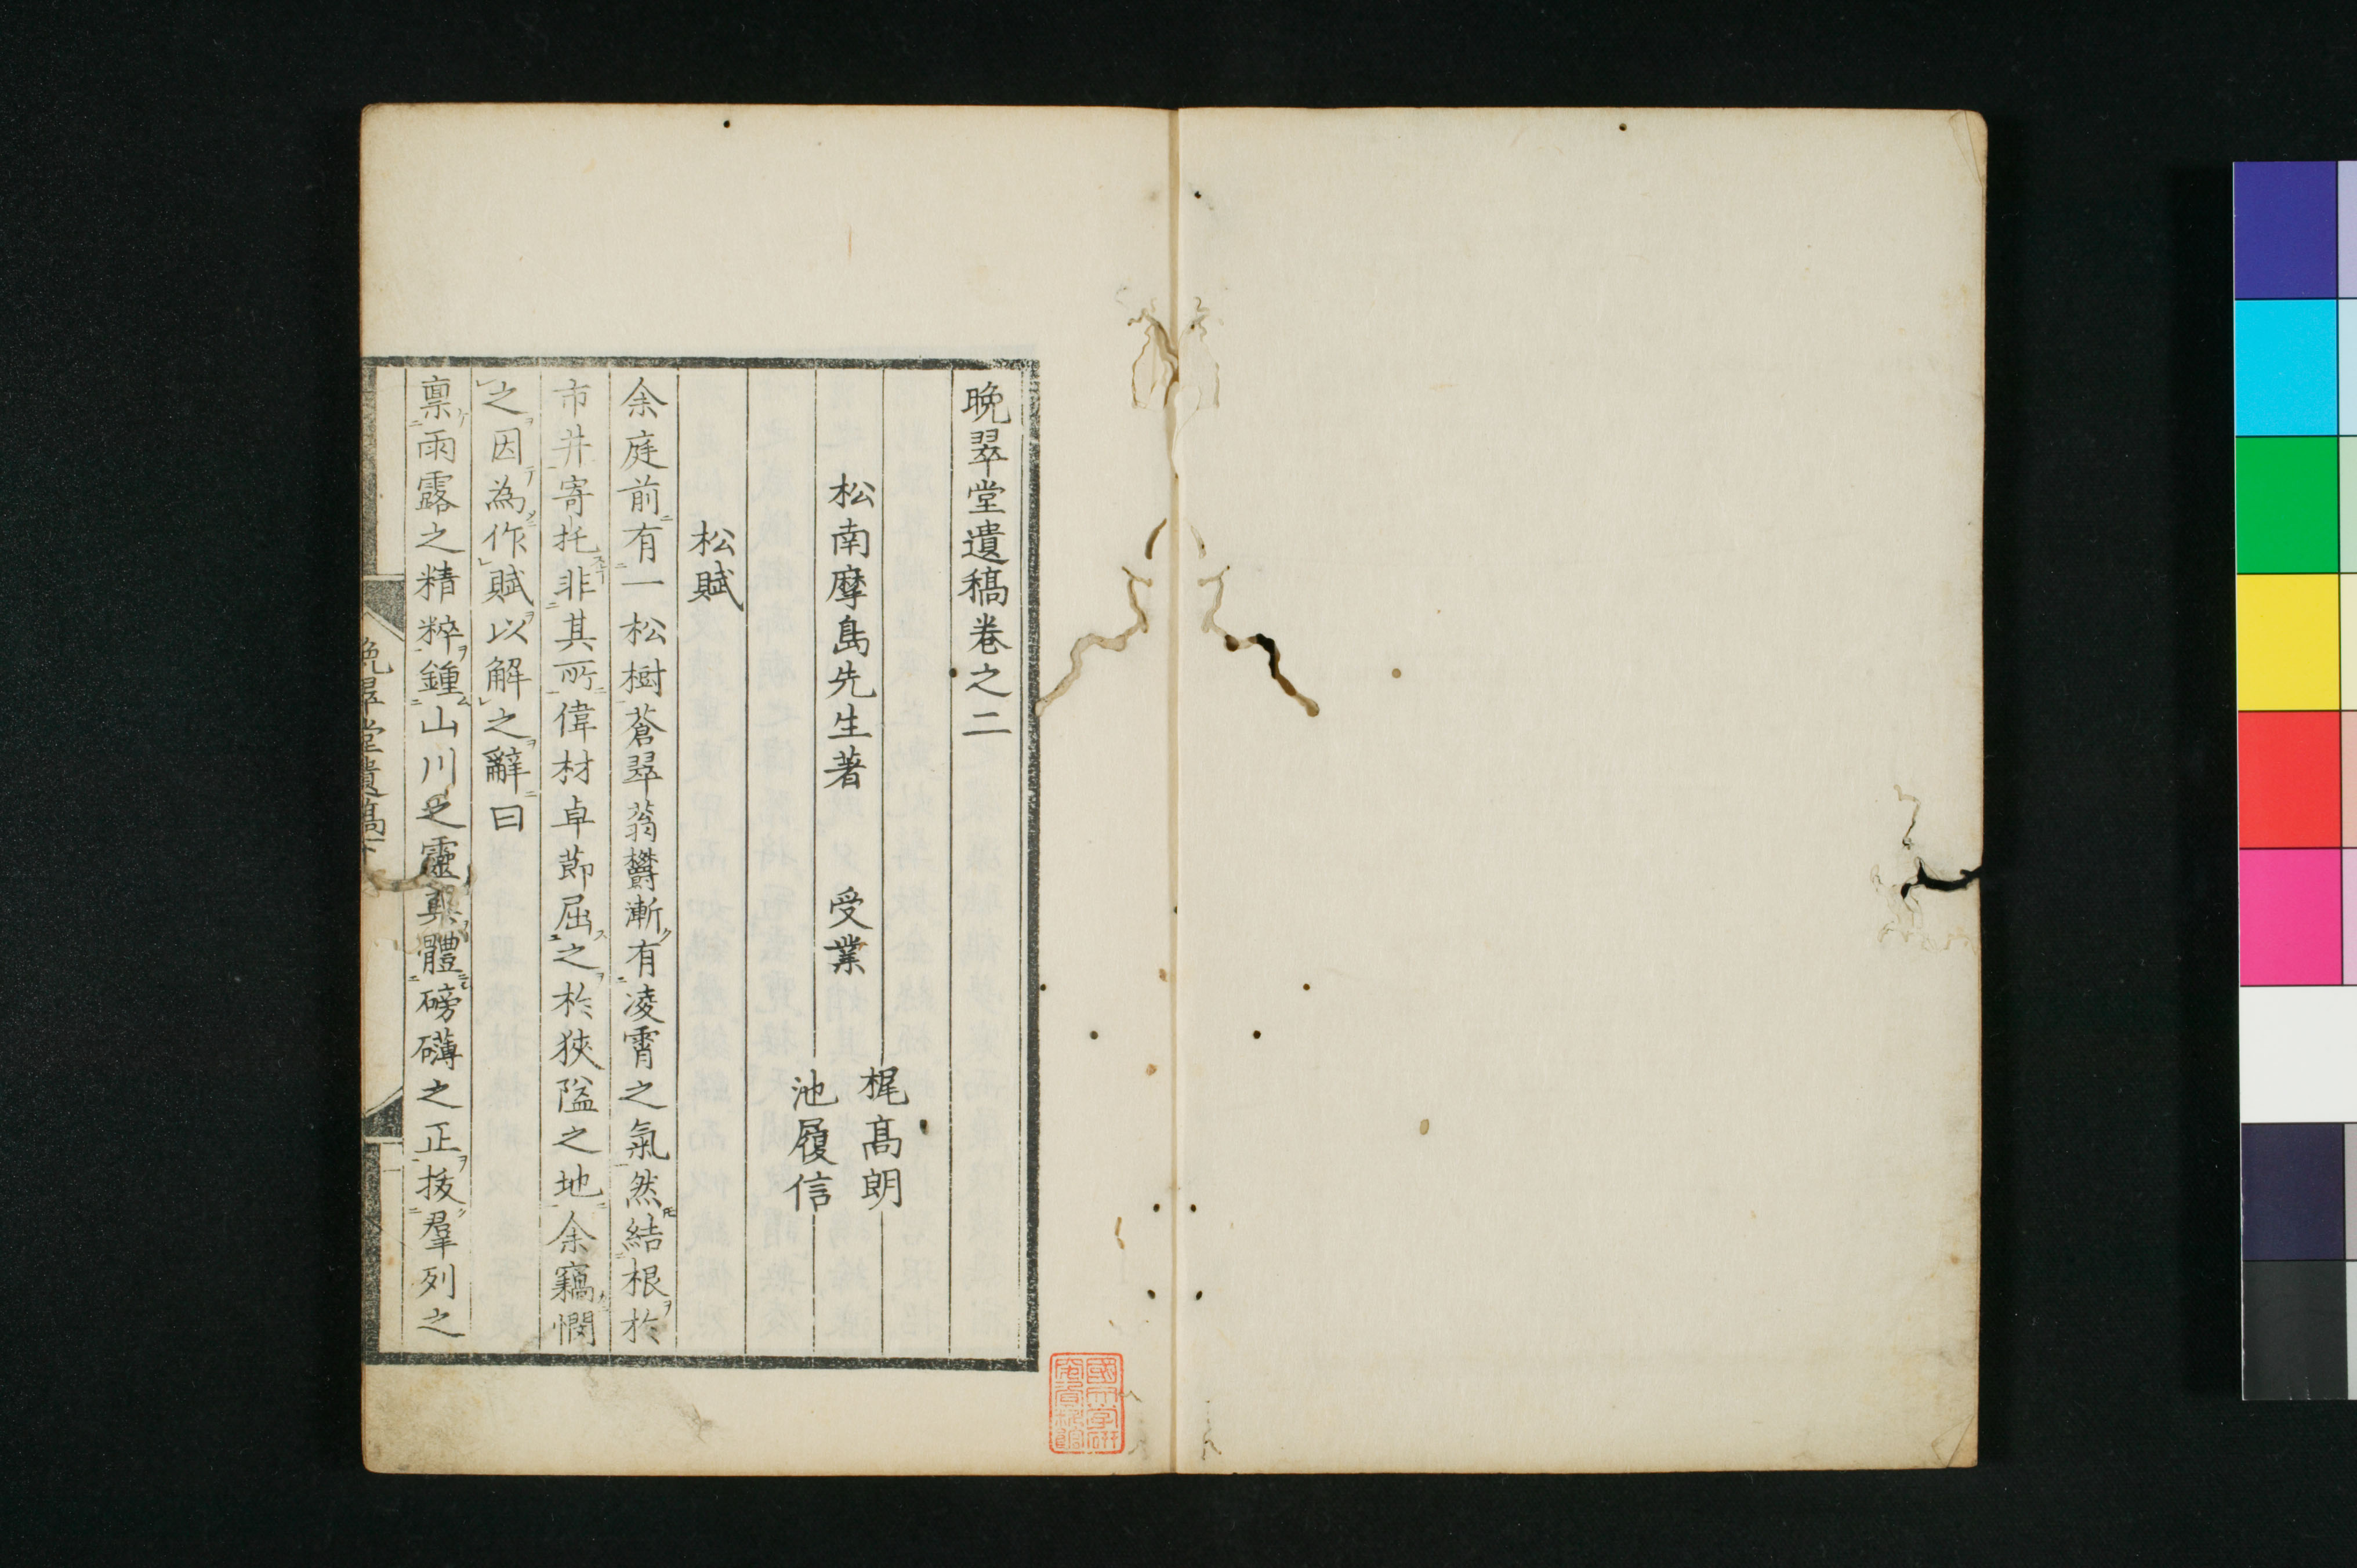 晩翠堂遺稿卷之二
松南摩島先生著　受業　梶高朗
池履信
松賦
余庭前有一松樹蒼翠蓊欝漸有凌霄之氣然結根於
市井寄托非其所偉材卓莭屈之於狹隘之地余竊憫
之因為作賦以解之辭曰
禀雨露之精粹鍾山川之靈具體磅礴之正拔羣列之
晩翠堂遺稿
國文學研
究資料館